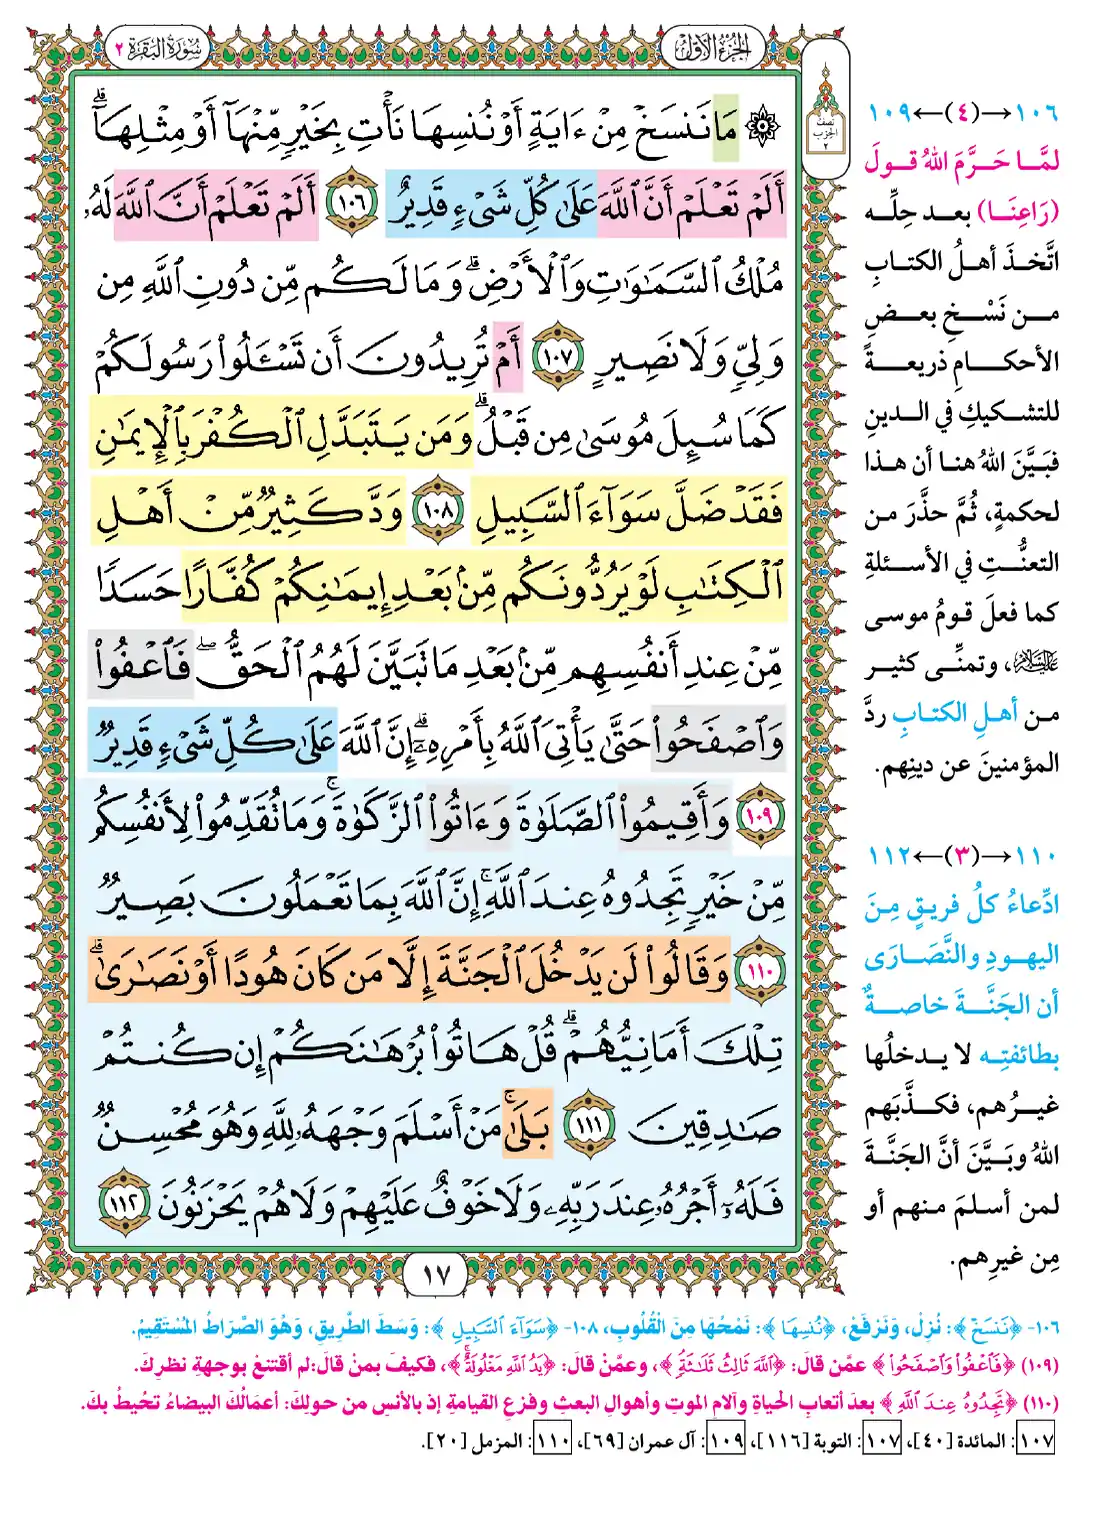 الجزء الأول
سورة البقرة ٢
نصف
الحزب
٢
۞ مَا نَنسَخْ مِنْ ءَايَةٍ أَوْ نُنسِهَا نَأْتِ بِخَيْرٍ مِّنْهَآ أَوْ مِثْلِهَآ ۗ
أَلَمْ تَعْلَمْ أَنَّ ٱللَّهَ عَلَىٰ كُلِّ شَىْءٍ قَدِيرٌ ١٠٦ أَلَمْ تَعْلَمْ أَنَّ ٱللَّهَ لَهُۥ
مُلْكُ ٱلسَّمَـٰوَٰتِ وَٱلْأَرْضِ ۗ وَمَا لَكُم مِّن دُونِ ٱللَّهِ مِن
وَلِىٍّ وَلَا نَصِيرٍ ١٠٧ أَمْ تُرِيدُونَ أَن تَسْـَٔلُوا۟ رَسُولَكُمْ
كَمَا سُئِلَ مُوسَىٰ مِن قَبْلُ ۗ وَمَن يَتَبَدَّلِ ٱلْكُفْرَ بِٱلْإِيمَـٰنِ
فَقَدْ ضَلَّ سَوَآءَ ٱلسَّبِيلِ ١٠٨ وَدَّ كَثِيرٌ مِّنْ أَهْلِ
ٱلْكِتَـٰبِ لَوْ يَرُدُّونَكُم مِّنۢ بَعْدِ إِيمَـٰنِكُمْ كُفَّارًا حَسَدًا
مِّنْ عِندِ أَنفُسِهِم مِّنۢ بَعْدِ مَا تَبَيَّنَ لَهُمُ ٱلْحَقُّ ۖ فَٱعْفُوا۟
وَٱصْفَحُوا۟ حَتَّىٰ يَأْتِىَ ٱللَّهُ بِأَمْرِهِۦٓ ۗ إِنَّ ٱللَّهَ عَلَىٰ كُلِّ شَىْءٍ قَدِيرٌ
١٠٩ وَأَقِيمُوا۟ ٱلصَّلَوٰةَ وَءَاتُوا۟ ٱلزَّكَوٰةَ ۚ وَمَا تُقَدِّمُوا۟ لِأَنفُسِكُم
مِّنْ خَيْرٍ تَجِدُوهُ عِندَ ٱللَّهِ ۗ إِنَّ ٱللَّهَ بِمَا تَعْمَلُونَ بَصِيرٌ
١١٠ وَقَالُوا۟ لَن يَدْخُلَ ٱلْجَنَّةَ إِلَّا مَن كَانَ هُودًا أَوْ نَصَـٰرَىٰ ۗ
تِلْكَ أَمَانِيُّهُمْ ۗ قُلْ هَاتُوا۟ بُرْهَـٰنَكُمْ إِن كُنتُمْ
صَـٰدِقِينَ ١١١ بَلَىٰ ۚ مَنْ أَسْلَمَ وَجْهَهُۥ لِلَّهِ وَهُوَ مُحْسِنٌ
فَلَهُۥٓ أَجْرُهُۥ عِندَ رَبِّهِۦ وَلَا خَوْفٌ عَلَيْهِمْ وَلَا هُمْ يَحْزَنُونَ ١١٢
١٧
١٠٦→(٤)←١٠٩
لمَّا حَرَّمَ اللهُ قولَ
(رَاعِنَا) بعد حِلِّه
اتَّخذَ أهلُ الكتابِ
من نَسْخِ بعضِ
الأحكامِ ذريعةً
للتشكيكِ في الدينِ
فبَيَّنَ اللهُ هنا أن هذا
لحكمةٍ، ثُمَّ حذَّرَ من
التعنُّتِ في الأسئلةِ
كما فعلَ قومُ موسى
عليه السلام، وتمنِّى كثير
من أهلِ الكتابِ ردَّ
المؤمنينَ عن دينِهم.
١١٠→(٣)←١١٢
ادِّعاءُ كلُّ فريقٍ مِنَ
اليهودِ والنَّصَارَى
أن الجَنَّةَ خاصةٌ
بطائفتِه لا يدخلُها
غيرُهم، فكذَّبَهم
اللهُ وبَيَّنَ أنَّ الجَنَّةَ
لمن أسلمَ منهم أو
مِن غيرِهم.
١٠٦- ﴿نَنسَخْ﴾: نُزِلْ، وَنَرفَعْ، ﴿نُنسِهَا﴾: نَمْحُهَا مِنَ الْقُلُوبِ، ١٠٨- ﴿سَوَآءَ ٱلسَّبِيلِ﴾: وَسَطَ الطَّرِيقِ، وَهُوَ الصِّرَاطُ المُسْتَقِيمُ.
(١٠٩) ﴿فَٱعْفُوا۟ وَٱصْفَحُوا۟﴾ عمَّن قالَ: ﴿ٱللَّهَ ثَالِثُ ثَلَـٰثَةٍ﴾، وعمَّنْ قالَ: ﴿يَدُ ٱللَّهِ مَغْلُولَةٌ﴾، فكيفَ بمنْ قالَ: لم أقتنعْ بوجهةِ نظرِكَ.
(١١٠) ﴿تَجِدُوهُ عِندَ ٱللَّهِ﴾ بعدَ أتعابِ الحياةِ وآلامِ الموتِ وأهوالِ البعثِ وفزعِ القيامةِ إذ بالأنسِ من حولِكَ: أعمَالُكَ البيضاءُ تحُيطُ بكَ.
١٠٧: المائدة [٤٠]، ١٠٧: التوبة [١١٦]، ١٠٩: آل عمران [٦٩]، ١١٠: المزمل [٢٠].